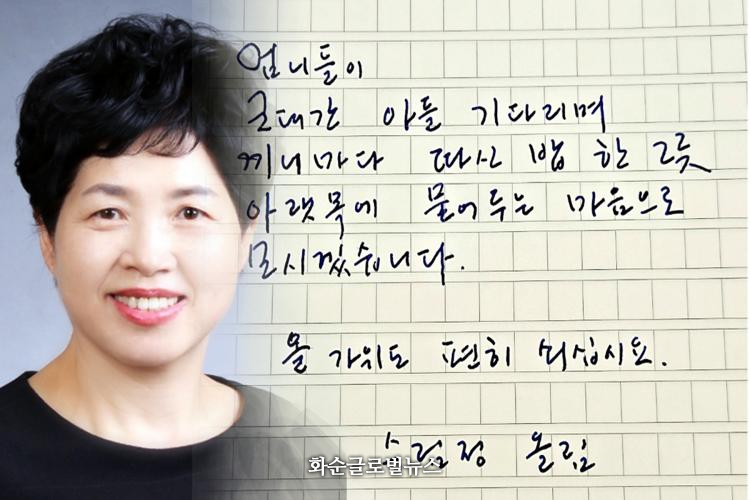 엄니들이
군대간 아들 기다리며
끼니마다 따신 밥 한 그릇
아랫목에 묻어두는 마음으로
모시겠습니다.
올 가위도 편히 쇠십시요.
수림정 올림
화순글로벌뉴스